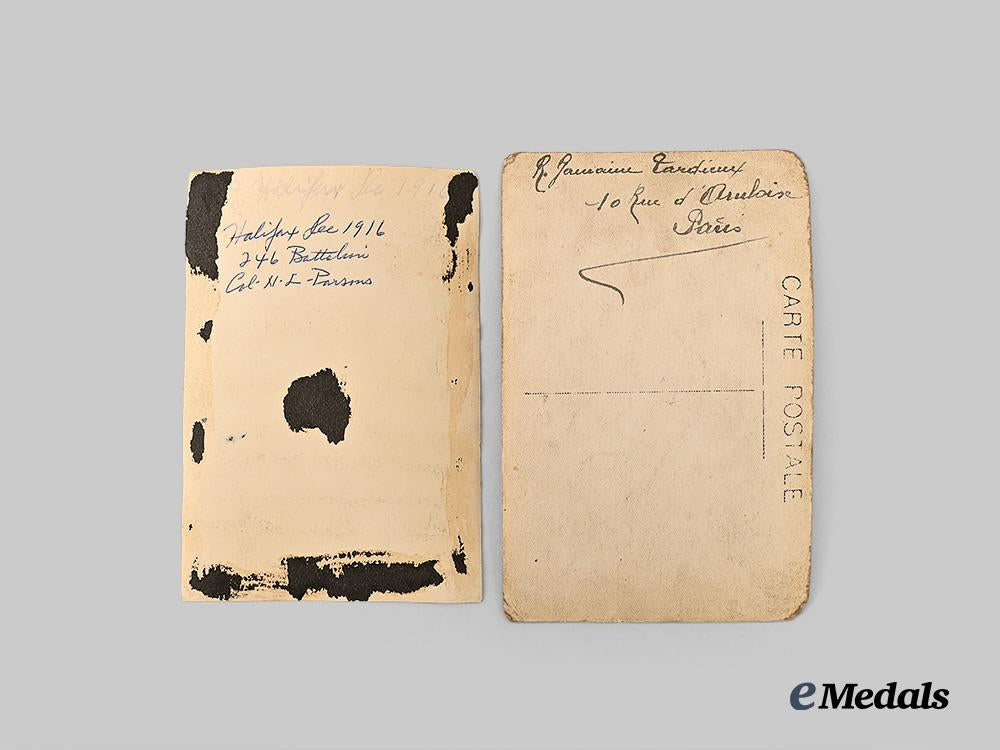 Halifax Dec 1916
Halifax Dec 1916
246 Battalion
Col. N. L. Parsons
R. Tardieux
10 Rue d'Amboise
Paris
CARTE POSTALE
eMedals